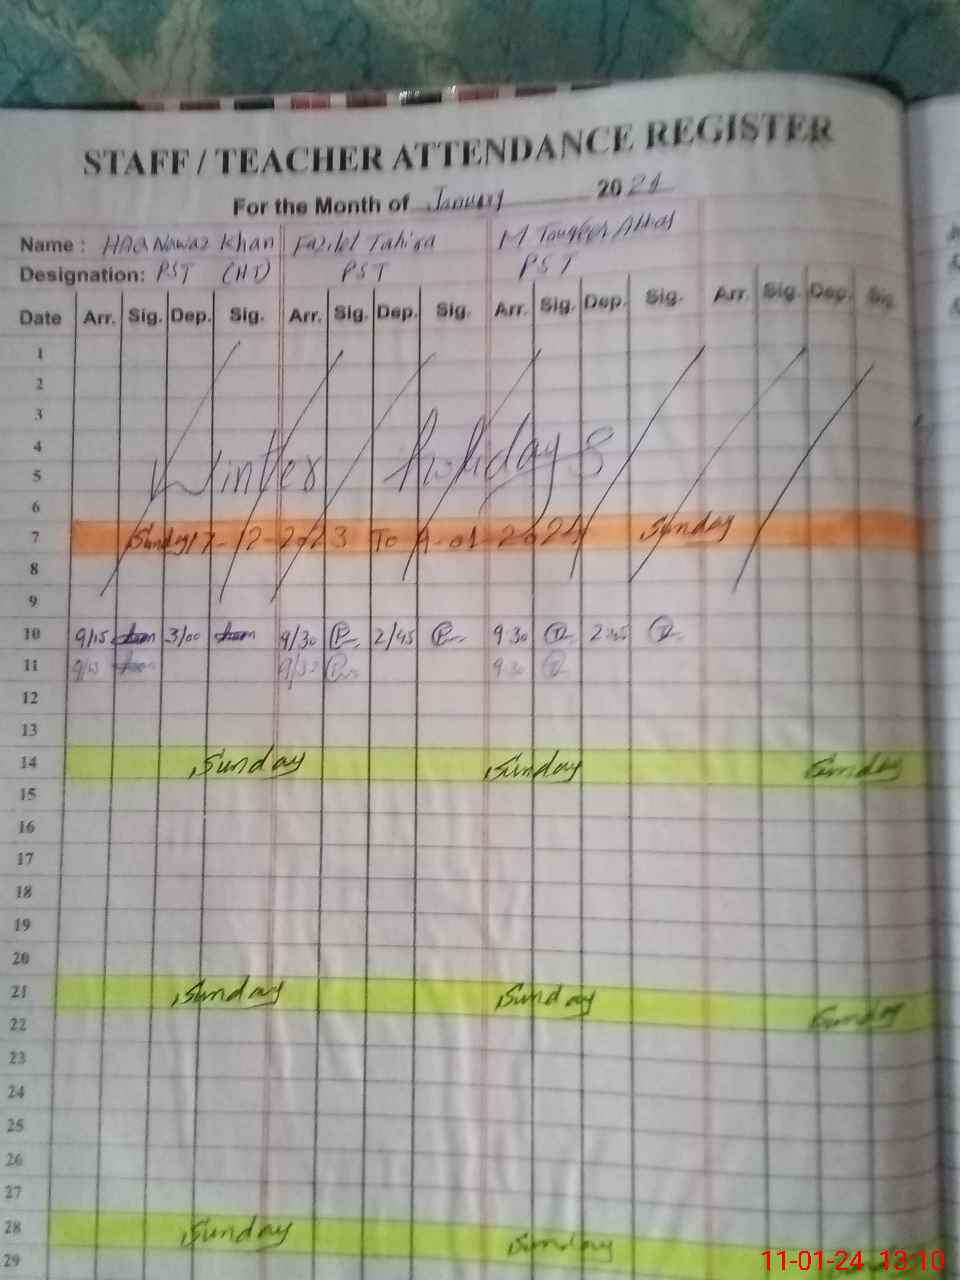 STAFF / TEACHER ATTENDANCE REGISTER
For the Month of January 2024
Name : HAQ Nawaz Khan Tahira M
Designation: PST (HT) PST PST
Date Arr. Sig. Dep. Sig. Arr. Sig. Dep. Sig. Arr. Sig. Dep. Sig. Arr. Sig. Dep. Sig.
1
2
3
4
Winter holidays
5
6
7 Sunday 17-12-2023 To 9-01-2024 Sunday
8
9
10 9/15 3/00 9/30 2/45 9:30 2:45
11 9/15 9/30 9:30
12
13
14 Sunday Sunday Sunday
15
16
17
18
19
20
21 Sunday Sunday Sunday
22
23
24
25
26
27
28 Sunday Sunday
29
11-01-24 13:10